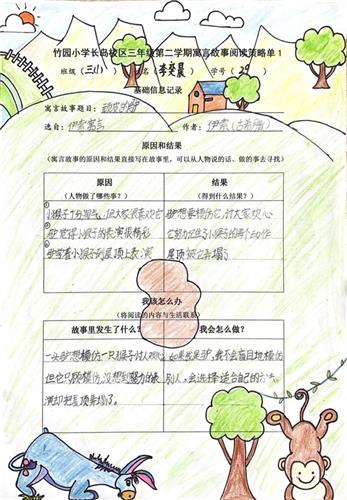 竹园小学长岛校区三年级第二学期寓言故事阅读策略单 1
班级（三(1)）姓名（李葵晨）学号（29）
基础信息记录
寓言故事题目：顽皮的驴
选自：伊索寓言 作者：伊索(古希腊)
原因和结果
（寓言故事的原因和结果直接写在故事里，可以从人物说的话、做的事去寻找）
原因 结果
（人物做了哪些事？） （得到什么结果？）
①小猴子十分淘气，但大家很喜欢它 驴想要模仿它，讨大家欢心
②驴觉得小猴子的表演很精彩 它努力记住了小猴子的每个动作
③驴学着小猴子到屋顶上表演 屋顶被它弄塌了
我该怎么办
（将阅读的内容与生活联系）
故事里发生了什么？ 我会怎么做？
一头驴想模仿一只猴子讨人欢心 如果我是驴，我不会盲目地模仿
但它只顾模仿，没想到努力的表 别人，会选择适合自己的方法。
演却把屋顶弄塌了。